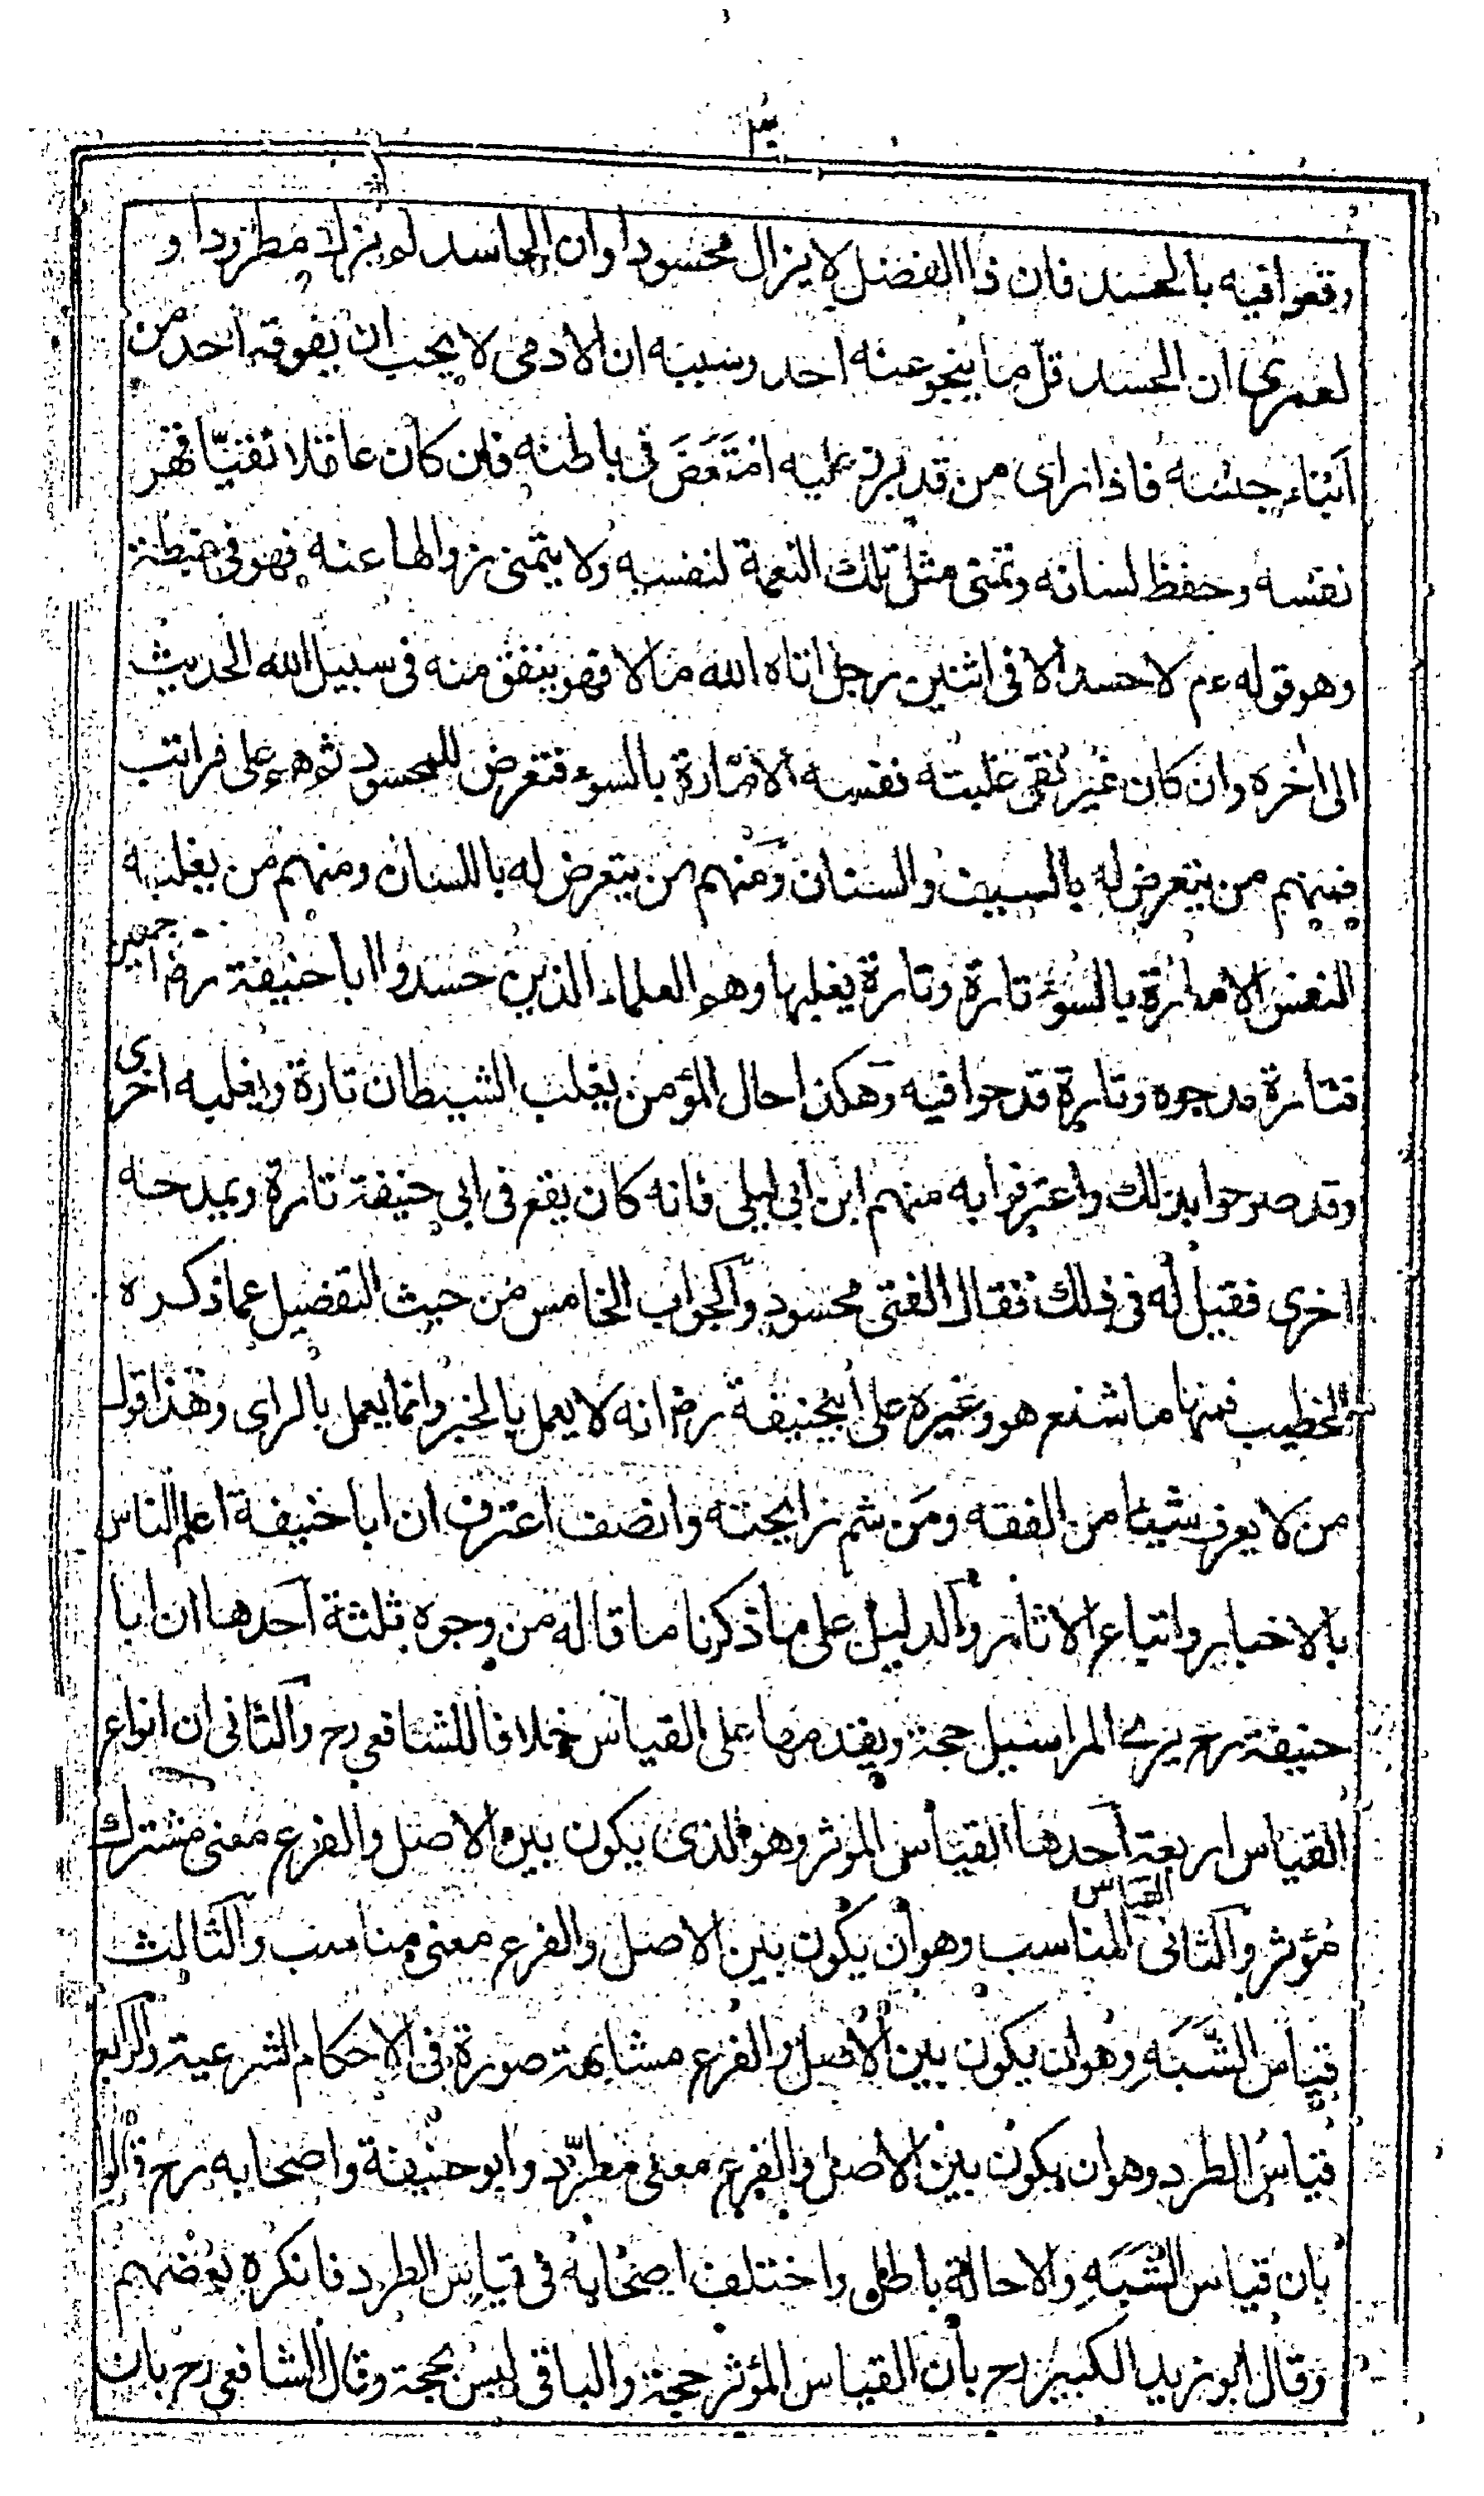 ٣
وقعوا فيه بالحسد فان ذا الفضل لا يزال محسودا وان الحاسد لم يزل مطرودا و
لعمرى ان الحسد قل ما ينجو عنه احد وسببه ان الادمى لا يحب ان يفوقه احد من
ابناء جنسه فاذا راى من قد برز عليه امتعض فى باطنه فان كان عاقلا تقيا قهر
نفسه وحفظ لسانه وتمنى مثل تلك النعمة لنفسه ولا يتمنى زوالها عنه فهو فى غبطة
وهو قوله عم لا حسد الا فى اثنين رجل اتاه الله مالا فهو ينفق منه فى سبيل الله الحديث
الى اخره وان كان غير تقى غلبته نفسه الامارة بالسوء فتعرض للمحسود ثم هم على مراتب
فمنهم من يتعرض له بالسيف والسنان ومنهم من يتعرض له باللسان ومنهم من يغلبه
النفس الامارة بالسوء تارة وتارة يغلبها وهم العلماء الذين حسدوا ابا حنيفة رضـ اجمعين
فتارة مدحوه وتارة قدحوا فيه وهكذا حال المؤمن يغلب الشيطان تارة ويغلبه اخرى
وقد صرحوا بذلك واعترفوا به منهم ابن ابى ليلى فانه كان يقع فى ابى حنيفة تارة ويمدحه
اخرى فقيل له فى ذلك فقال الفتى محسود والجواب الخامس من حيث التفضيل عما ذكره
الخطيب فمنها ما شنع هو وغيره على ابيحنيفة رضـ انه لا يعمل بالخبر وانما يعمل بالراى وهذا قول
من لا يعرف شيئا من الفقه ومن شم رايحته وانصف اعترف ان ابا حنيفة اعلم الناس
بالاخبار واتباع الاثار والدليل على ما ذكرنا ما قاله من وجوه ثلثة احدها ان ابا
حنيفة رح يرى المراسيل حجة ويقدمها على القياس خلافا للشافعى رح والثانى ان انواع
القياس اربعة احدها القياس المؤثر وهو الذى يكون بين الاصل والفرع معنى مشترك
مؤثر والثانى القياس المناسب وهو ان يكون بين الاصل والفرع معنى مناسب والثالث
قياس الشبه وهو ان يكون بين الاصل والفرع مشابهة صورة فى الاحكام الشرعية والرابع
قياس الطرد وهو ان يكون بين الاصل والفرع معنى مطرد وابو حنيفة واصحابه رح قالوا
بان قياس الشبه والاحالة باطل واختلف اصحابه فى قياس الطرد فانكره بعضهم
وقال ابو زيد الكبير رح بان القياس المؤثر حجة والباقى ليس بحجة وقال الشافعى رح بان